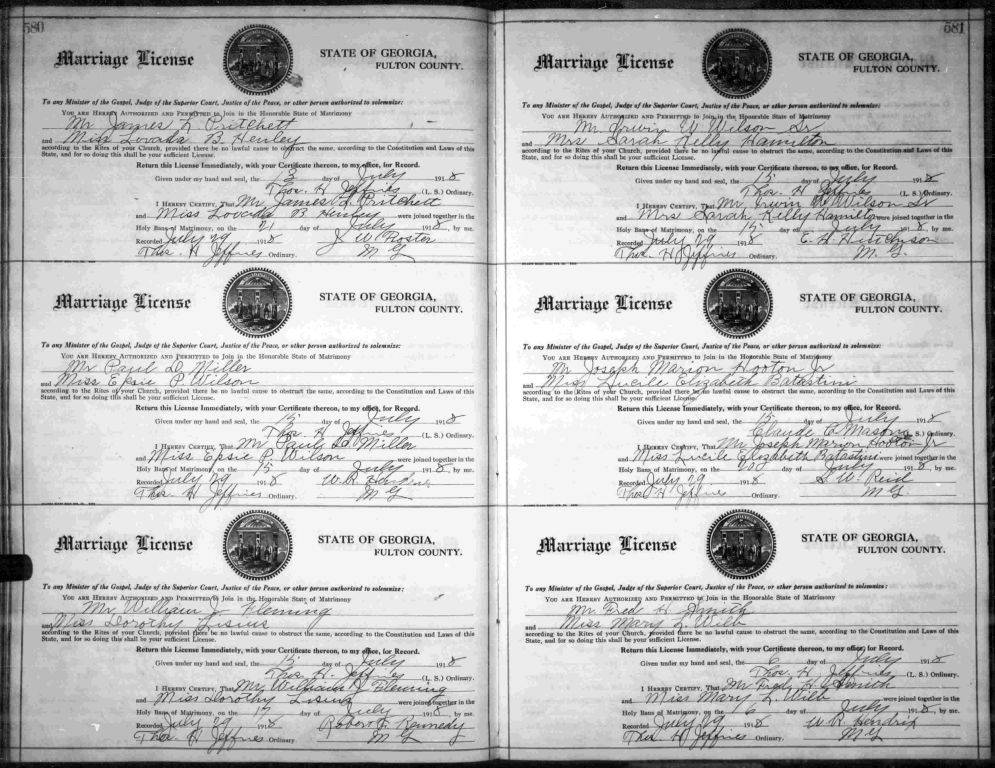 580
Marriage License
STATE OF GEORGIA,
FULTON COUNTY.
To any Minister of the Gospel, Judge of the Superior Court, Justice of the Peace, or other person authorized to solemnize:
YOU ARE HEREBY AUTHORIZED AND PERMITTED to Join in the Honorable State of Matrimony
Mr James L Pritchett
and Miss Lovada B. Henley
according to the Rites of your Church, provided there be no lawful cause to obstruct the same, according to the Constitution and Laws of this
State, and for so doing this shall be your sufficient License.
Return this License Immediately, with your Certificate thereon, to my office, for Record.
Given under my hand and seal, the 13 day of July 1918
Thos. H Jeffries (L. S.) Ordinary.
I HEREBY CERTIFY, That Mr James L Pritchett
and Miss Lovada B Henley were joined together in the
Holy Bans of Matrimony, on the 21 day of July 1918, by me.
Recorded July 29 1918 J W
Thos. H Jeffries Ordinary. M G
Marriage License
STATE OF GEORGIA,
FULTON COUNTY.
To any Minister of the Gospel, Judge of the Superior Court, Justice of the Peace, or other person authorized to solemnize:
YOU ARE HEREBY AUTHORIZED AND PERMITTED to Join in the Honorable State of Matrimony
Mr Paul D. Miller
and Miss Epsie P. Wilson
according to the Rites of your Church, provided there be no lawful cause to obstruct the same, according to the Constitution and Laws of this
State, and for so doing this shall be your sufficient License.
Return this License Immediately, with your Certificate thereon, to my office, for Record.
Given under my hand and seal, the 15 day of July 1918
Thos. H Jeffries (L. S.) Ordinary.
I HEREBY CERTIFY, That Mr Paul D. Miller
and Miss Epsie P. Wilson were joined together in the
Holy Bans of Matrimony, on the 15 day of July 1918, by me.
Recorded July 29 1918 W. R.
Thos. H Jeffries Ordinary. M G
Marriage License
STATE OF GEORGIA,
FULTON COUNTY.
To any Minister of the Gospel, Judge of the Superior Court, Justice of the Peace, or other person authorized to solemnize:
YOU ARE HEREBY AUTHORIZED AND PERMITTED to Join in the Honorable State of Matrimony
Mr William J Fleming
and Miss Dorothy Lisius
according to the Rites of your Church, provided there be no lawful cause to obstruct the same, according to the Constitution and Laws of this
State, and for so doing this shall be your sufficient License.
Return this License Immediately, with your Certificate thereon, to my office, for Record.
Given under my hand and seal, the 15 day of July 1918
Thos. H. Jeffries (L. S.) Ordinary.
I HEREBY CERTIFY, That Mr William J Fleming
and Miss Dorothy Lisius were joined together in the
Holy Bans of Matrimony, on the 17 day of July 1918, by me.
Recorded July 29 1918 Robert F. Kennedy
Thos. H Jeffries Ordinary. M G
581
Marriage License
STATE OF GEORGIA,
FULTON COUNTY.
To any Minister of the Gospel, Judge of the Superior Court, Justice of the Peace, or other person authorized to solemnize:
YOU ARE HEREBY AUTHORIZED AND PERMITTED to Join in the Honorable State of Matrimony
Mr. Irwin W Wilson Sr
and Mrs Sarah Kelly Hamilton
according to the Rites of your Church, provided there be no lawful cause to obstruct the same, according to the Constitution and Laws of this
State, and for so doing this shall be your sufficient License.
Return this License Immediately, with your Certificate thereon, to my office, for Record.
Given under my hand and seal, the 15 day of July 1918
Thos. H Jeffries (L. S.) Ordinary.
I HEREBY CERTIFY, That Mr Irwin W Wilson Sr
and Mrs Sarah Kelly Hamilton were joined together in the
Holy Bans of Matrimony, on the 15 day of July 1918, by me.
Recorded July 29 1918 E. H. Hutchinson
Thos. H Jeffries Ordinary. M. G.
Marriage License
STATE OF GEORGIA,
FULTON COUNTY.
To any Minister of the Gospel, Judge of the Superior Court, Justice of the Peace, or other person authorized to solemnize:
YOU ARE HEREBY AUTHORIZED AND PERMITTED to Join in the Honorable State of Matrimony
Mr Joseph Marion Hooton Jr
and Miss Lucile Elizabeth Batastini
according to the Rites of your Church, provided there be no lawful cause to obstruct the same, according to the Constitution and Laws of this
State, and for so doing this shall be your sufficient License.
Return this License Immediately, with your Certificate thereon, to my office, for Record.
Given under my hand and seal, the 15 day of July 1918
Claude C Mason (L. S.) Ordinary.
I HEREBY CERTIFY, That Mr Joseph Marion Hooton Jr
and Miss Lucile Elizabeth Batastini were joined together in the
Holy Bans of Matrimony, on the 20 day of July 1918, by me.
Recorded July 29 1918 S. W. Reid
Thos H Jeffries Ordinary. M G
Marriage License
STATE OF GEORGIA,
FULTON COUNTY.
To any Minister of the Gospel, Judge of the Superior Court, Justice of the Peace, or other person authorized to solemnize:
YOU ARE HEREBY AUTHORIZED AND PERMITTED to Join in the Honorable State of Matrimony
Mr Fred H Smith
and Miss Mary L. Wilb
according to the Rites of your Church, provided there be no lawful cause to obstruct the same, according to the Constitution and Laws of this
State, and for so doing this shall be your sufficient License.
Return this License Immediately, with your Certificate thereon, to my office, for Record.
Given under my hand and seal, the 6 day of July 1918
Thos. H Jeffries (L. S.) Ordinary.
I HEREBY CERTIFY, That Mr Fred H Smith
and Miss Mary L. Wilb were joined together in the
Holy Bans of Matrimony, on the 6 day of July 1918, by me.
Recorded July 29 1918 W. R. Hendrix
Thos. H Jeffries Ordinary. M G